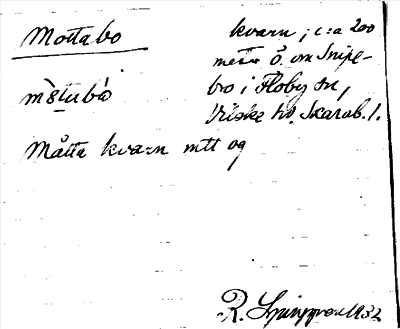 Mottabo
kvarn; c:a 200
meter ö. om Snipe-
bro i Floby sn,
Vilske hd. Skarab. l.
Måtta kvarn mtt og
R. 1932